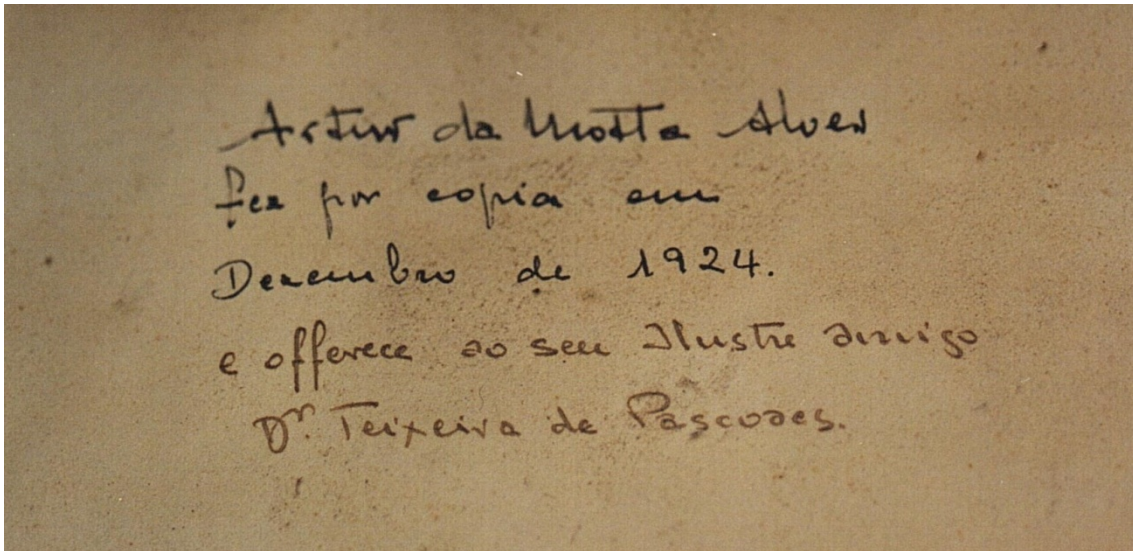 Artur da Motta Alves
fez por copia em
Dezembro de 1924.
e offerece ao seu Ilustre amigo
Dr. Teixeira de Pascoaes.